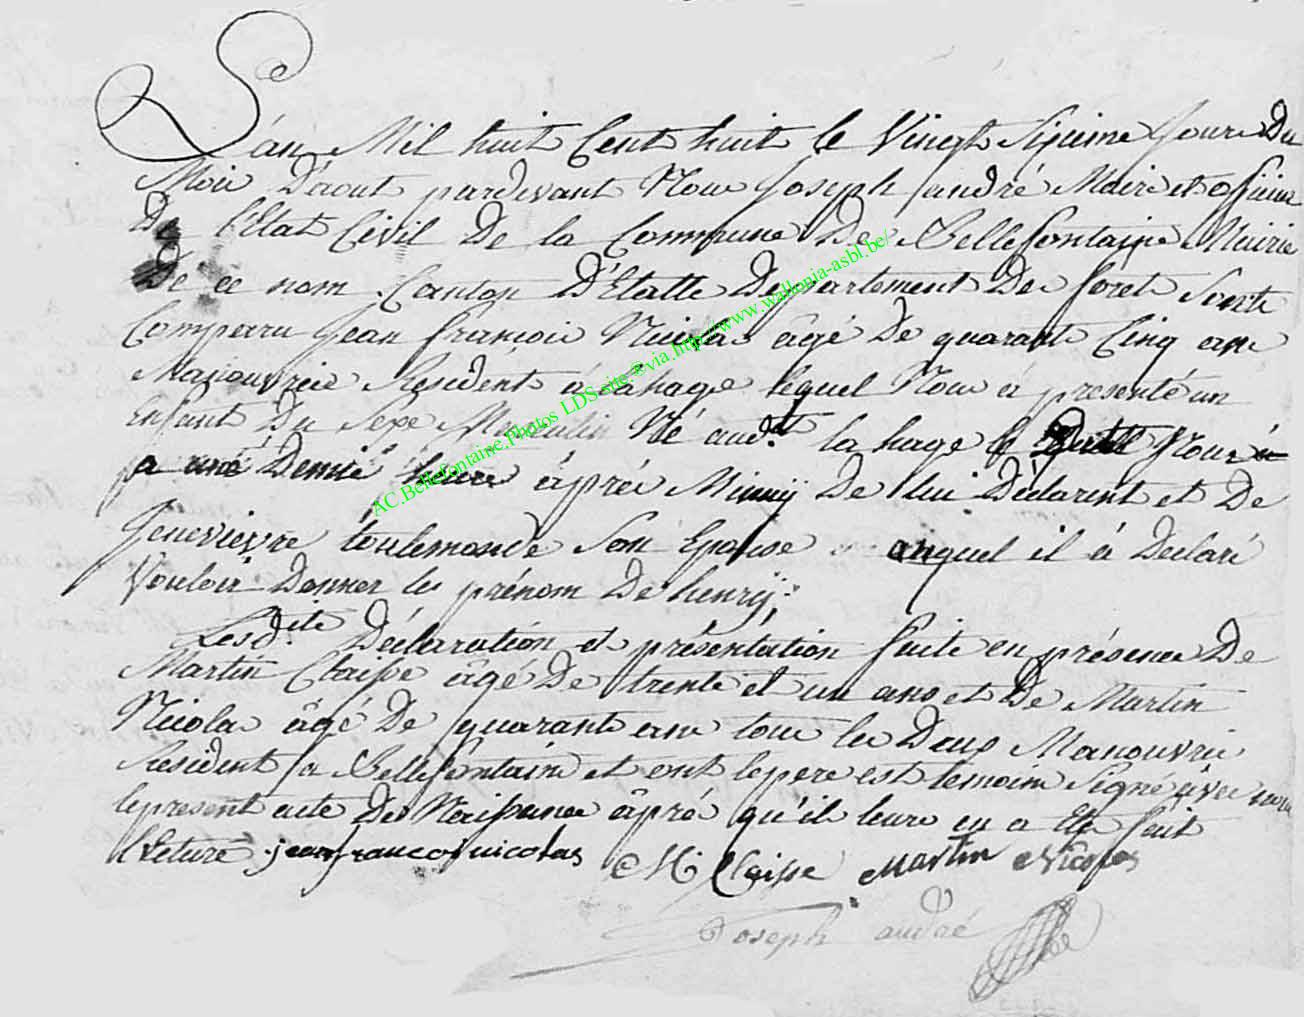 L'an Mil huit Cent huit le Vingt Sixieme Jour Du
Moi D'aout pardevant Nous Joseph andré Maire et officier
De l'Etat Civil De la Commune De Bellefontaine Mairie
De ce nom Canton D'Etalle Departement De foret Sont
Comparru Jean françois Nicolas âgé De quarant Cinq ans
Manouvrié Resident á lahage lequel Nous á presenté un
Enfant Du Sexe Masculin Né aud.t la hage le Jour
a une Demie heure âprés Miniy De lui Déclarent et De
Genevievre toulemonde Son Epouse auquel il á Declaré
Vouloir Donner les prénom De henrÿ;
Lesd.ite Déclaration et présentation faite en présence De
Martin Claisse âgé De trente et un ans et De Martin
Nicolas âgé De quarant ans tous les Deux Manouvrié
Résident a Bellefontaine et ont le pere est temoin Signé avec nous
le present acte De Naissance âpré qu'il leure en a Ete fait
lecture. jean francoi nicolas M Claisse Martin Nicolas
Joseph andré
AC.Bellefontaine.Photos LDS site.©via.http://www.wallonia-asbl.be/